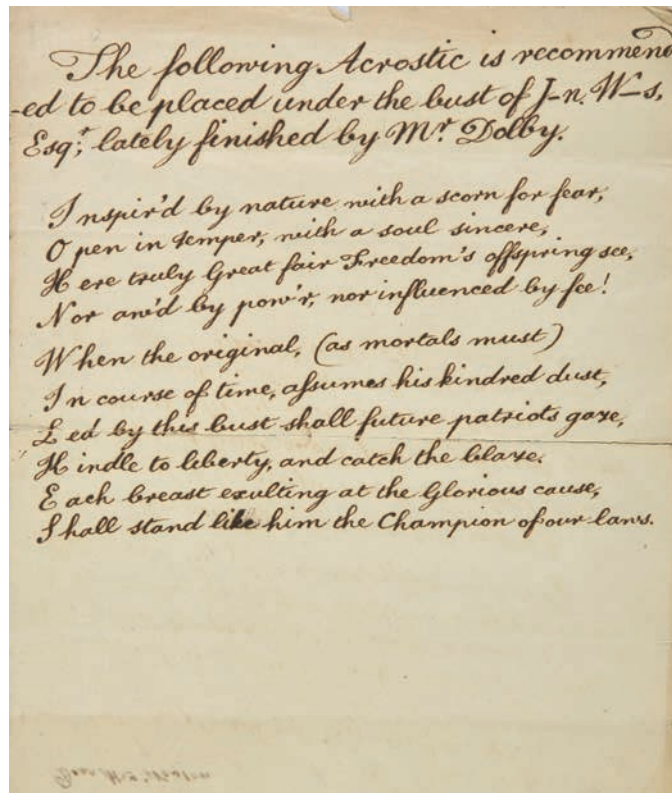 The following Acrostic is recommend
-ed to be placed under the bust of J-n. W-s,
Esqr, lately finished by Mr Dolby.
Inspir'd by nature with a scorn for fear,
Open in temper, with a soul sincere,
Here truly Great fair Freedom's offspring see,
Nor aw'd by pow'r, nor influenced by fee!
When the original, (as mortals must)
In course of time, assumes his kindred dust,
Led by this bust shall future patriots gaze,
Kindle to liberty, and catch the blaze.
Each breast exulting at the Glorious cause,
Shall stand like him the Champion of our laws.